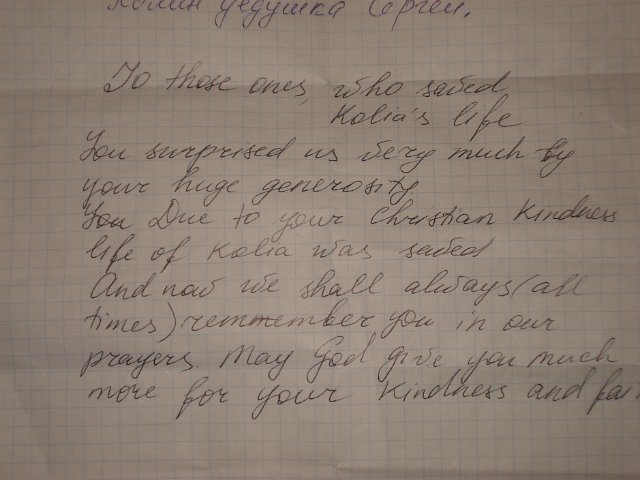 Колин дедушка Сергей.
To those ones, who saved
Kolia's life
You surprised us very much by
your huge generosity
You Due to your Christian Kindness
life of Kolia was saved
And now we shall always (all
times) remmember you in our
prayers. May God give you much
more for your Kindness and fai